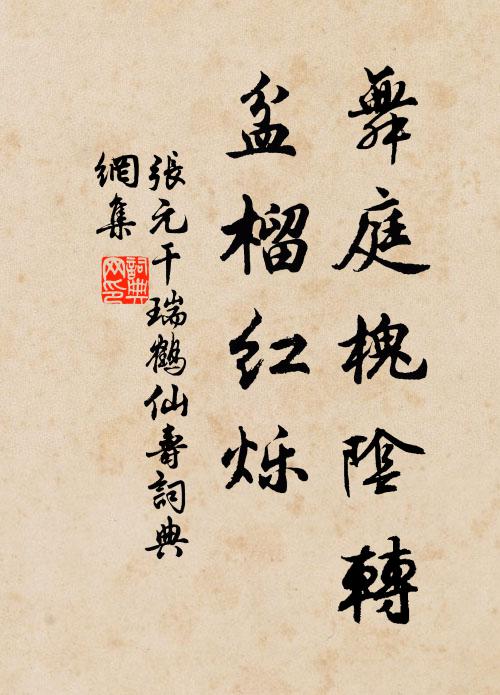 舞庭槐陰轉
盆榴红烁
張元干瑞鶴仙壽詞典
網集
詞典网印